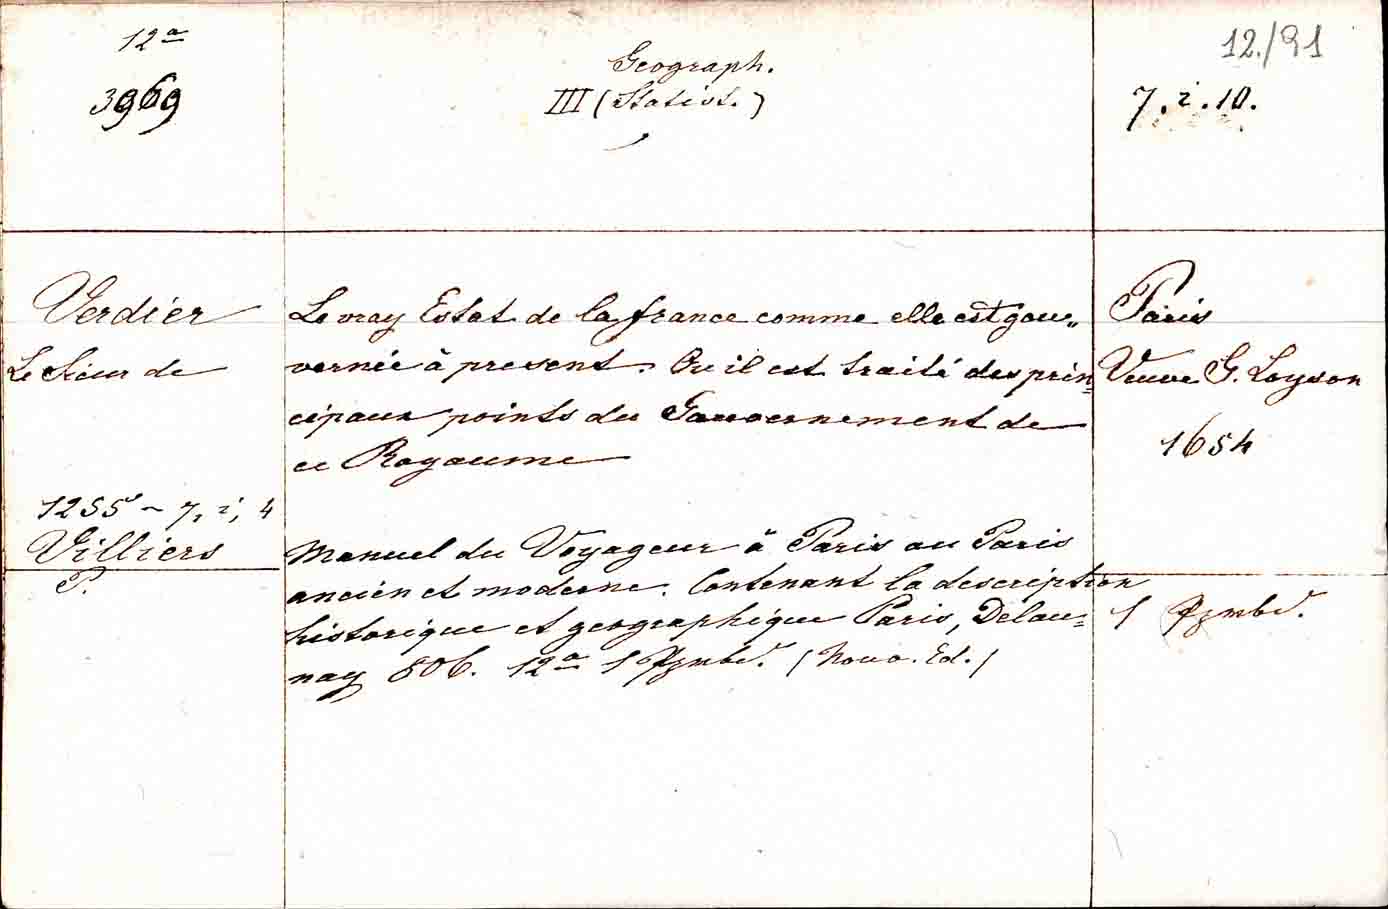 12a
3969
Geograph.
III (Statist.)
12./91
7. i. 10.
Verdier
Le Sieur de
Le vray Estat de la france comme elle est gou„
vernée à present. Ou il est traité des prin=
cipaux points du Gouvernement de
ce Royaume
Paris
Veuve G. Loyson
1654
1255 - 7, i, 4
Villiers
P.
Manuel du Voyageur à Paris ou Paris
ancien et moderne. Contenant la description
historique et geographique Paris, Delau=
nay 806. 12a 1 Pzmbd. (Nouv. Ed.)
1 Pzmbd.